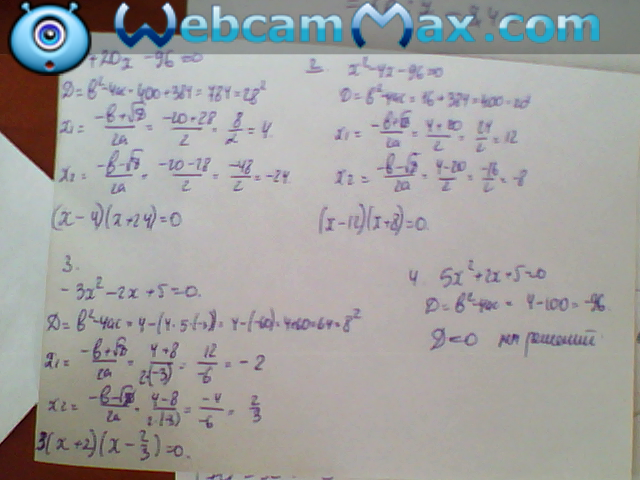 WebcamMax.com
+20x -96=0
D=b²-4ac=400+384=784=28²
x₁= (-b+√D)/2a = (-20+28)/2 = 8/2 = 4.
x₂= (-b-√D)/2a = (-20-28)/2 = -48/2 = -24.
(x-4)(x+24)=0
2. x²-4x-96=0
D=b²-4ac=16+384=400=20²
x₁= (-b+√D)/2a = (4+20)/2 = 24/2 = 12
x₂= (-b-√D)/2a = (4-20)/2 = -16/2 = -8
(x-12)(x+8)=0.
3.
-3x²-2x+5=0.
D=b²-4ac=4-(4·5·(-3))=4-(-60)=4+60=64=8²
x₁= (-b+√D)/2a = (4+8)/2·(-3) = 12/-6 = -2
x₂= (-b-√D)/2a = (4-8)/2·(-3) = -4/-6 = 2/3
3(x+2)(x-2/3)=0.
4. 5x²+2x+5=0
D=b²-4ac= 4-100=-96
D<0 нет решений